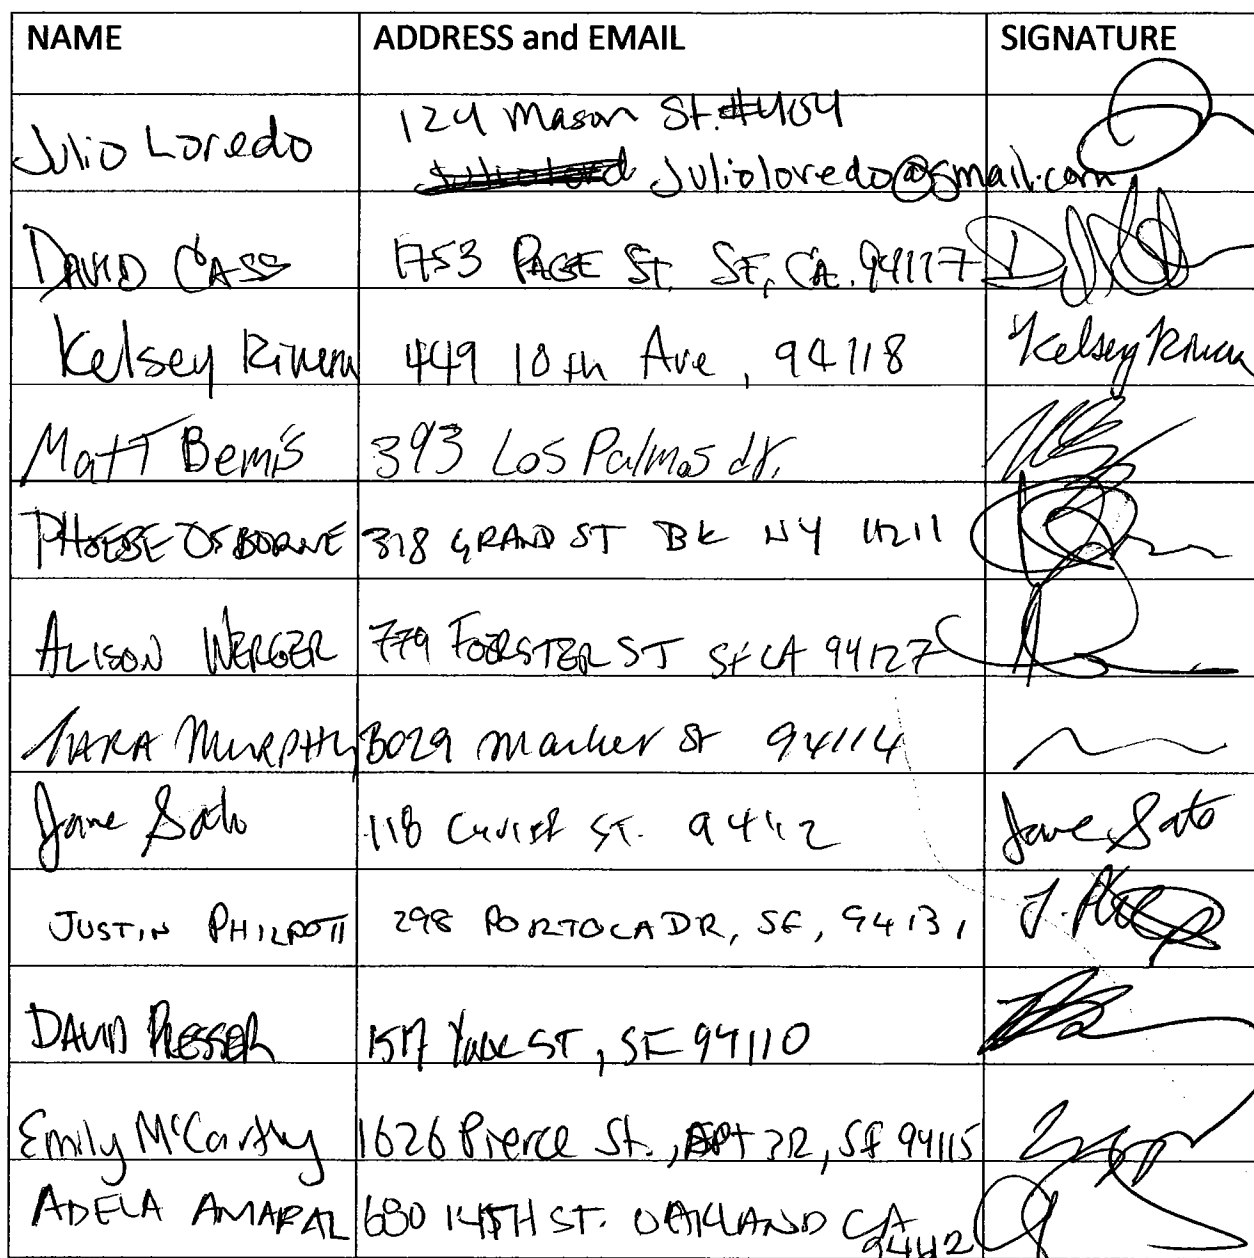 NAME ADDRESS and EMAIL SIGNATURE
Julio Loredo 124 Mason St. #404
julioloredo@gmail.com
DAVID CASS 1753 PAGE ST. SF, CA. 94117
Kelsey Rivera 449 10th Ave, 94118 Kelsey Rivera
Matt Bemis 393 Los Palmos dr.
PHOEBE OSBORNE 318 GRAND ST BK NY 11211
ALISON WERGER 779 FOERSTER ST SF CA 94127
MURPHY 3029 Market St 94114
Jane Sato 118 St. Jane Sato
JUSTIN PHILPOTT 298 PORTOLA DR, SF, 94131 J.
DAVID PRESSER York ST, SF 94110
Emily McCarthy 1626 Pierce St., APT 3R, SF 94115
ADELA AMARAL 680 14TH ST. OAKLAND CA